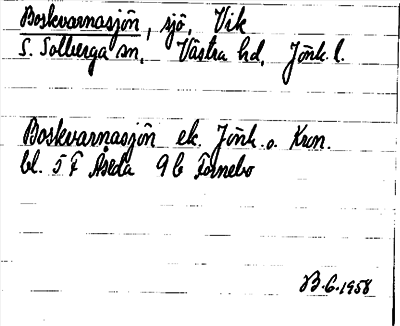 Boskvarnasjön, sjö, Vik
S. Solberga sn. Västra hd. Jönk. l.
Boskvarnasjön ek. Jönk. o. Kron.
bl. 5 F Åseda 9 b Fornebo
B. 6. 1958